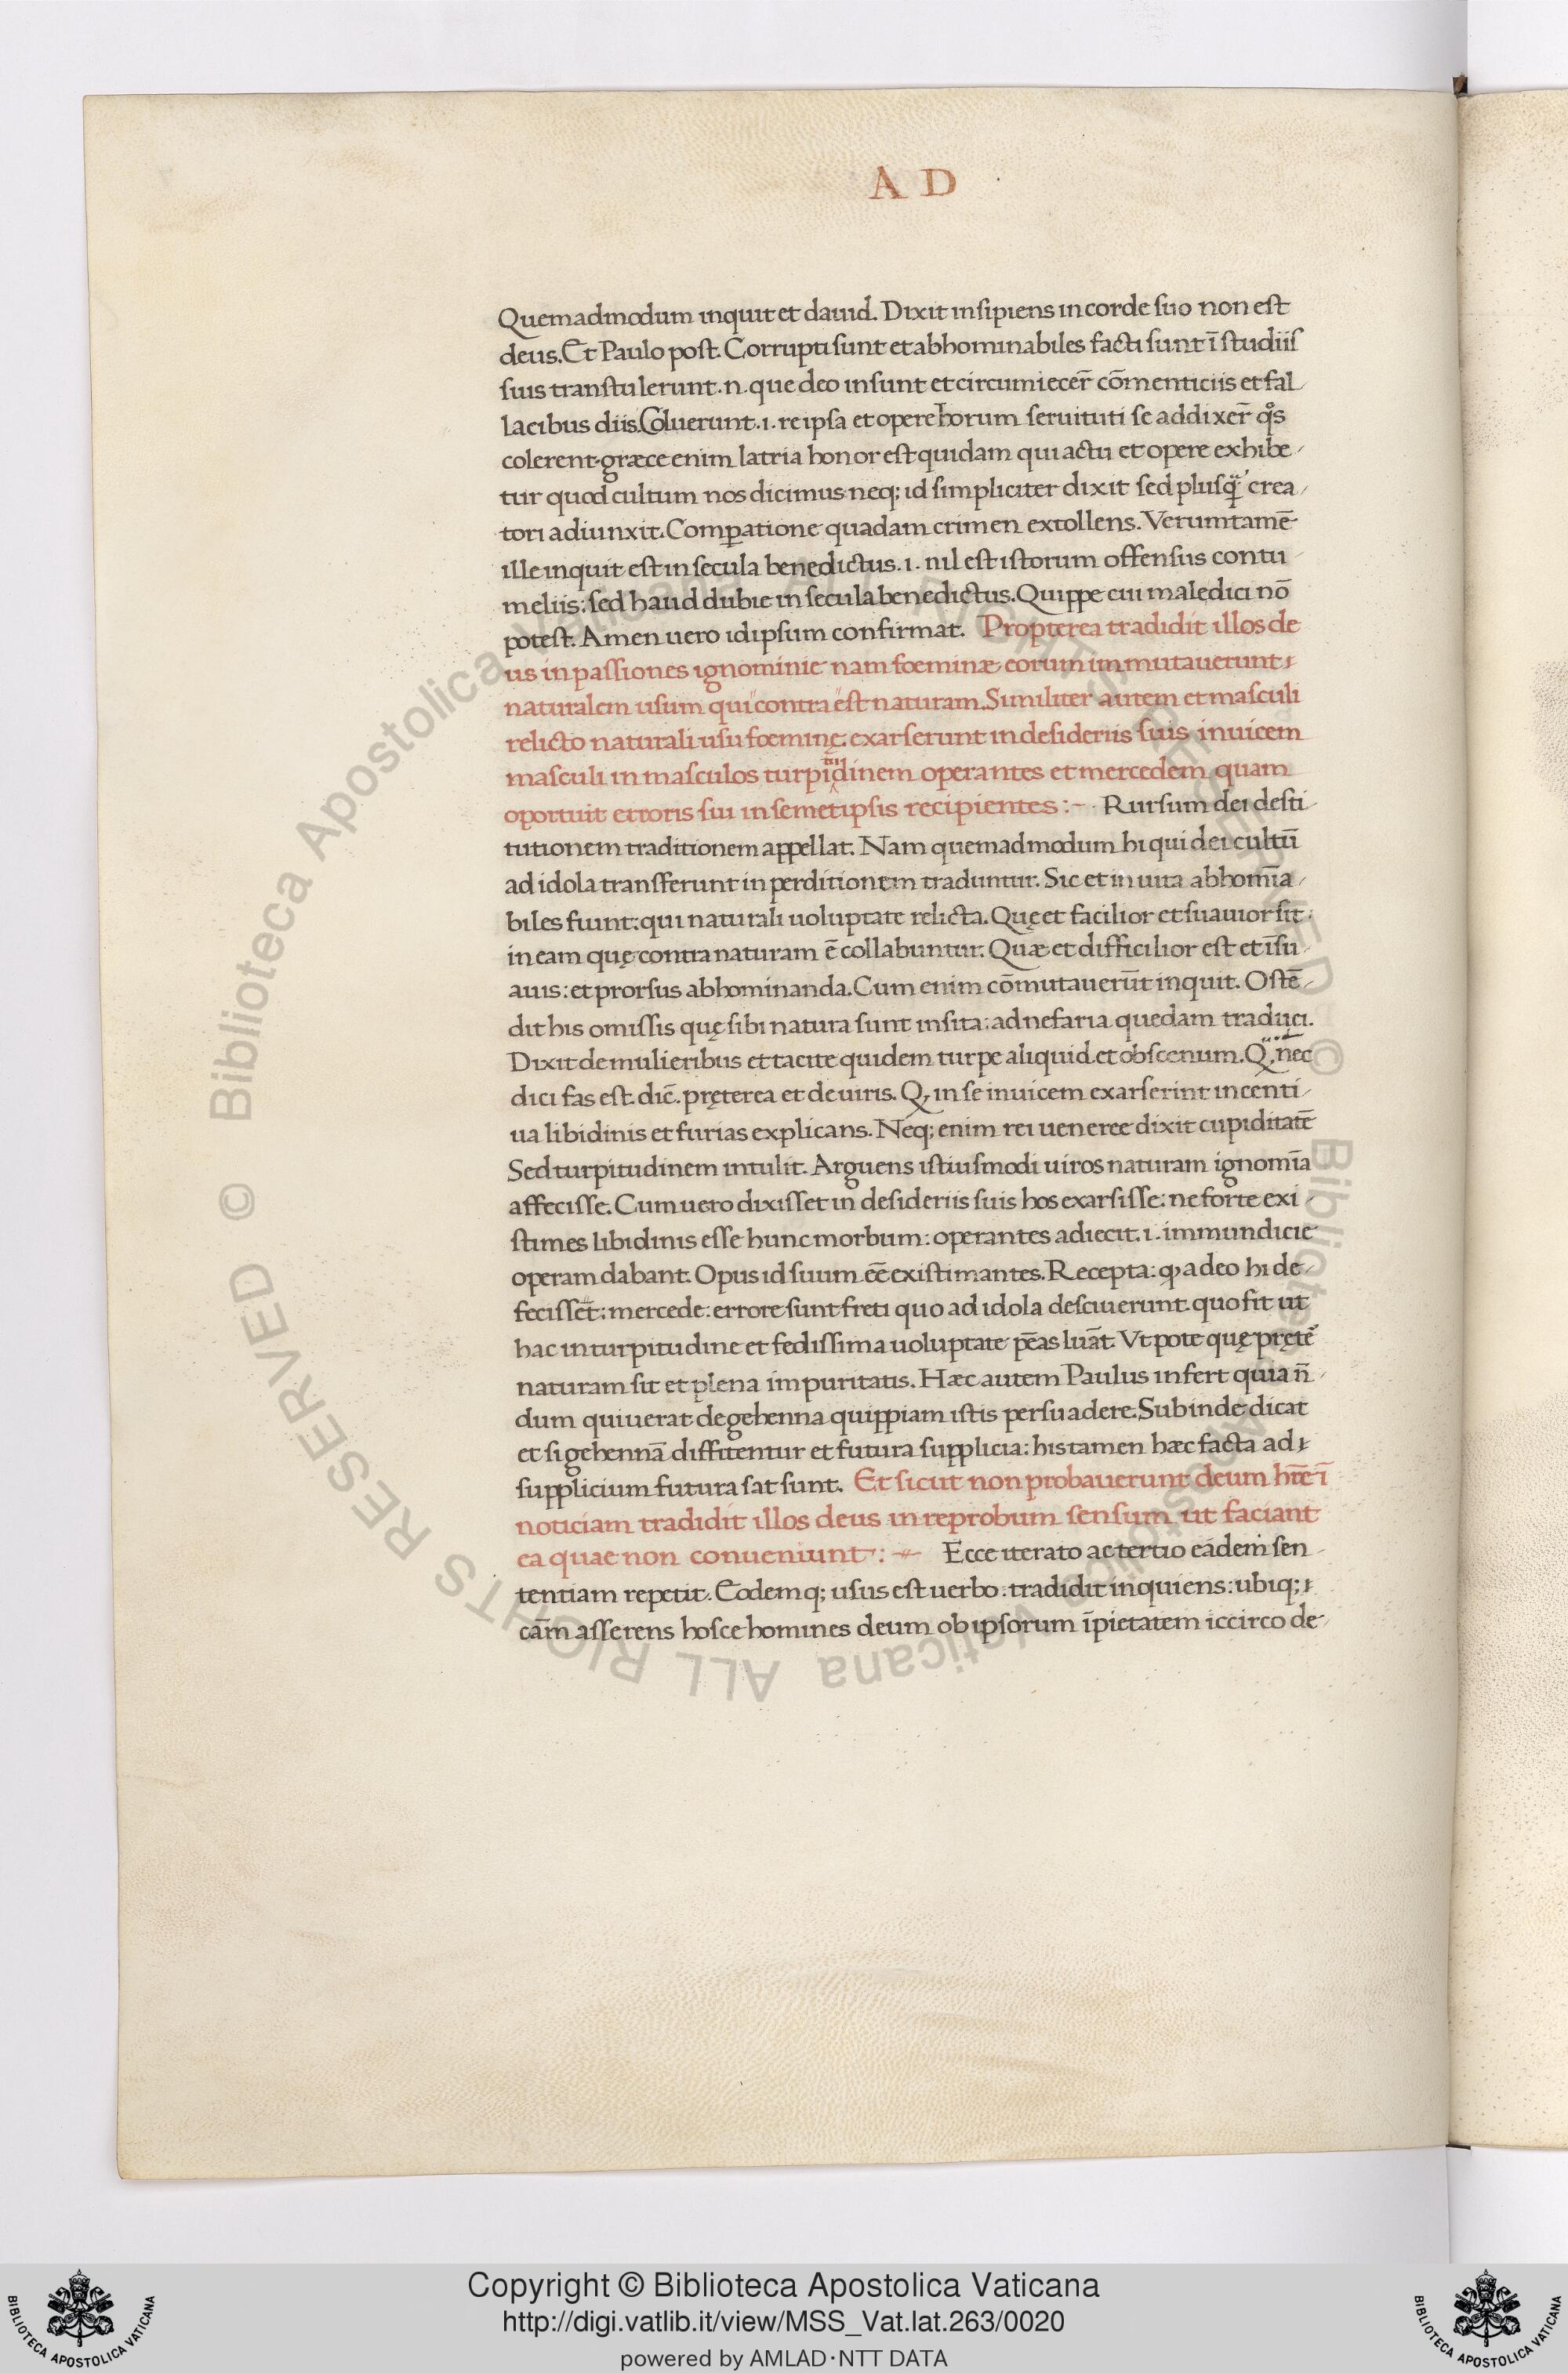 A D
Quemadmodum inquit et dauid. Dixit insipiens in corde suo non est
deus. Et Paulo post. Corrupti sunt et abhominabiles facti sunt ī studiis
suis transtulerunt .n. que deo insunt et circumiecer̄ cōmenticiis et fal
lacibus diis. Coluerunt .i. re ipsa et opere horum seruituti se addixer̄ qͦs
colerent græce enim latria honor est quidam qui actu et opere exhibe
tur quod cultum nos dicimus neq; id simpliciter dixit sed plusq̈ crea
tori adiunxit. Comꝑatione quadam crimen extollens. Verumtamē
ille inquit est in secula benedictus .i. nil est istorum offensus contu
meliis: sed haud dubie in secula benedictus. Quippe cui maledici nō
potest. Amen uero idipsum confirmat. Propterea tradidit illos de
us in passiones ignominie nam foeminæ eorum immutauerunt
naturalem usum qui contra est naturam. Similiter autem et masculi
relicto naturali usu foeminę exarserunt in desideriis suis inuicem
masculi in masculos turpitudinem operantes et mercedem quam
oportuit erroris sui in semetipsis recipientes :- Rursum dei desti
tutionem traditionem appellat. Nam quemadmodum hi qui dei cultū
ad idola transferunt in perditionem traduntur. Sic et in uita abhomīa
biles fiunt: qui naturali uoluptate relicta. Quę et facilior et suauior sit:
in eam quę contra naturam ē collabuntur. Quæ et difficilior est et īsu
auis: et prorsus abhominanda. Cum enim cōmutauerūt inquit. Ostē
dit his omissis quę sibi natura sunt insita: ad nefaria quedam traduci.
Dixit de mulieribus et tacite quidem turpe aliquid et obscenum. Q, nec
dici fas est. dic̄. pręterea et de uiris. Q, in se inuicem exarserint incenti
ua libidinis et furias explicans. Neq; enim rei uenereę dixit cupiditatē
Sed turpitudinem intulit. Arguens istiusmodi uiros naturam ignomīa
affecisse. Cum uero dixisset in desideriis suis hos exarsisse: ne forte exi
stimes libidinis esse hunc morbum: operantes adiecit .i. immundicie
operam dabant. Opus id suum eē existimantes. Recepta: ꝙ a deo hi de
fecisset: mercede: errore sunt freti quo ad idola desciuerunt. quo fit ut
hac in turpitudine et fedissima uoluptate pēas luāt. Vt pote quę pręte᷑
naturam sit et plena impuritatis. Hæc autem Paulus infert quia n̄
dum quiuerat de gehenna quippiam istis persuadere. Subinde dicat
et si gehennā diffitentur et futura supplicia: his tamen hæc facta ad
supplicium futura sat sunt. Et sicut non probauerunt deum hr̄e ī
noticiam tradidit illos deus in reprobum sensum ut faciant
ea quae non conueniunt :- Ecce iterato ac tertio eādem sen
tentiam repetit. Eodemq; usus est uerbo: tradidit inquiens: ubiq;
cām asserens hosce homines deum ob ipsorum īpietatem iccirco de
© Biblioteca Apostolica Vaticana ALL RIGHTS RESERVED
Copyright © Biblioteca Apostolica Vaticana
http://digi.vatlib.it/view/MSS_Vat.lat.263/0020
powered by AMLAD·NTT DATA
BIBLIOTECA APOSTOLICA VATICANA
BIBLIOTECA APOSTOLICA VATICANA